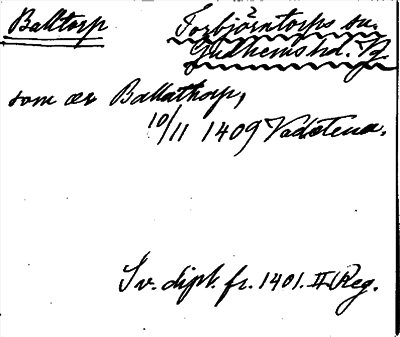 Balltorp
Torbjörntorps sn.
Gudhems hd. Vg
som ær Ballathorp,
10/11 1409 Vadstena.
Sv. dipl. fr. 1401. II Reg.